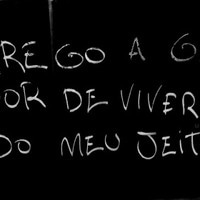 REGO A G
OR DE VIVER
DO MEU JEIT